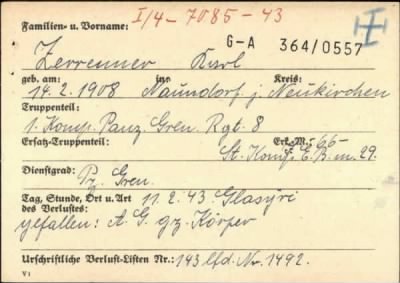 I/4-7085-43
Familien- u. Vorname:
G-A 364/0557
Zerrenner Karl
geb. am: in: Kreis:
14.2.1908 Naundorf j. Neukirchen
Truppenteil:
1. Komp. Panz. Gren. Rgt. 8
Ersatz-Truppenteil: Erk.-M.: -65-
St. Komp. E. B. m. 29.
Dienstgrad:
Pz. Gren.
Tag, Stunde, Ort u. Art 11.2.43 Glasyri
des Verlustes:
gefallen: A. G. gz. Körper
Urschriftliche Verlust-Listen Nr.: 143 lfd. Nr. 1492.
V 1